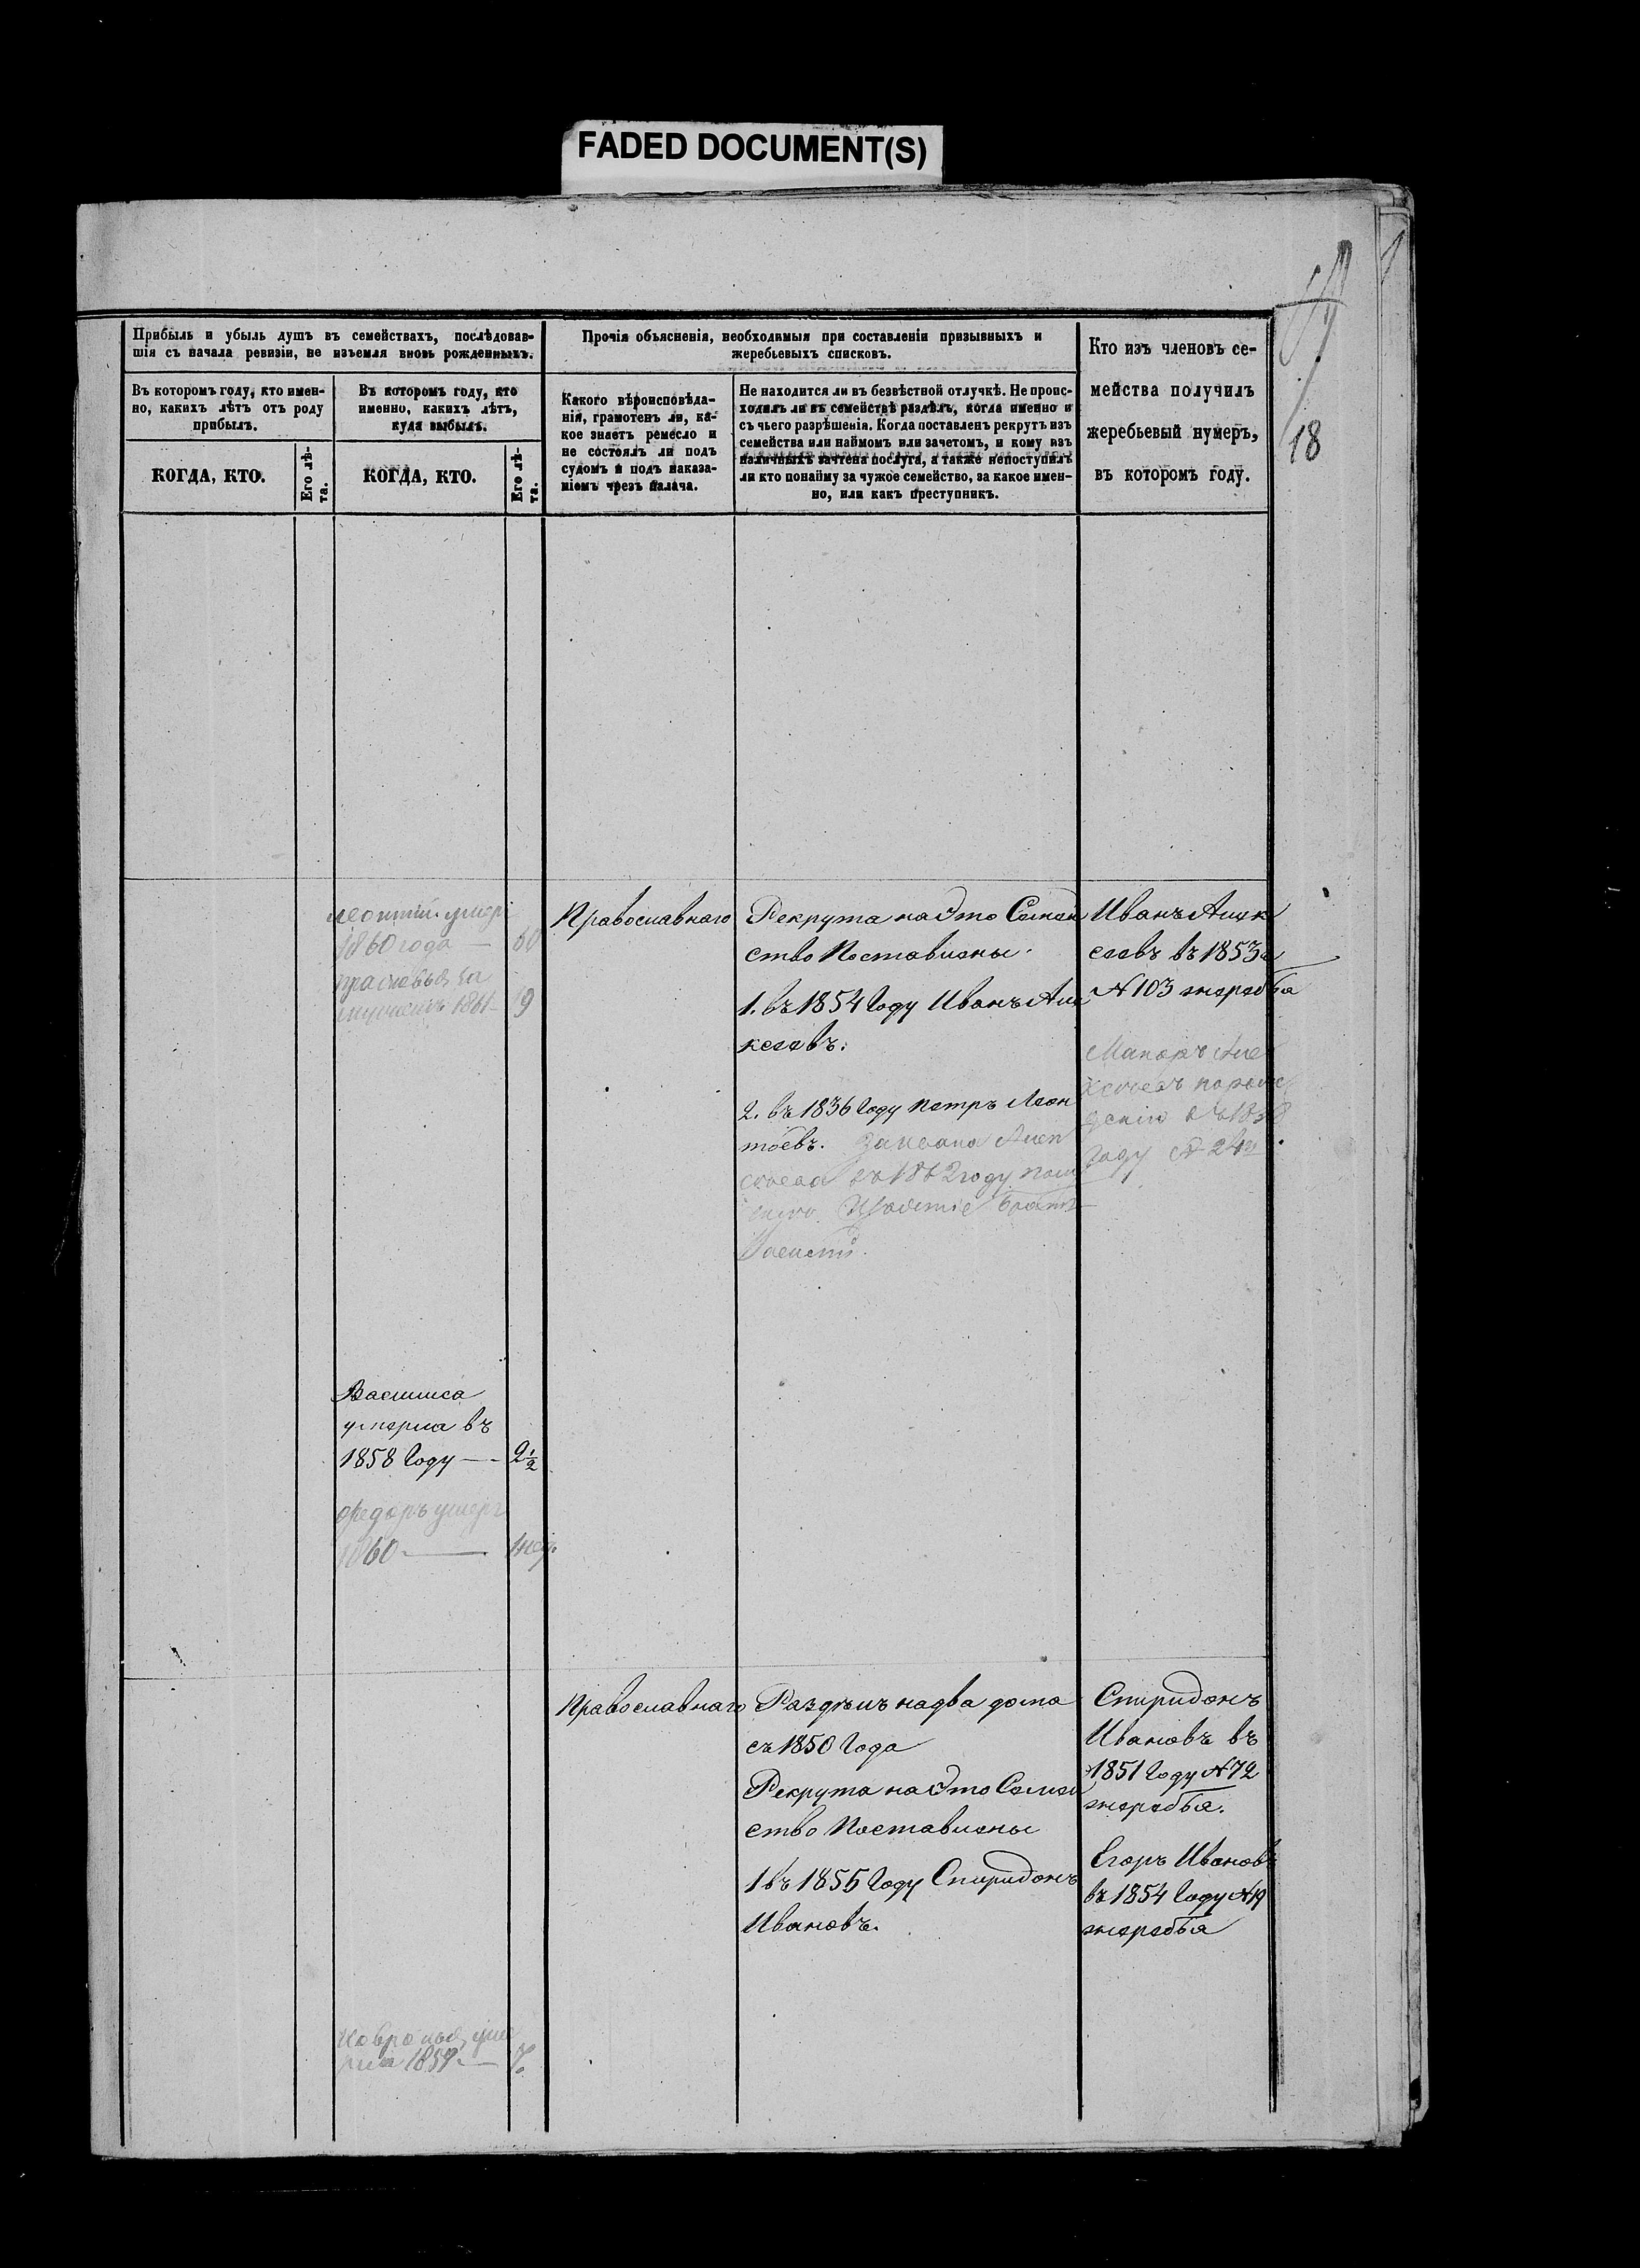 FADED DOCUMENT(S)
18
Прибыль и убыль душъ въ семействахъ, послѣдовав-
шія съ начала ревизіи, не изъемля вновь рожденныхъ.
Въ которомъ году, кто имен-
но, какихъ лѣтъ отъ роду
прибылъ.
КОГДА, КТО.
Его лѣ-
та.
Въ которомъ году, кто
именно, какихъ лѣтъ,
куда выбылъ.
КОГДА, КТО.
Его лѣ-
та.
Прочія объясненія, необходимыя при составленіи призывныхъ и
жеребьевыхъ списковъ.
Какого вѣроисповѣда-
нія, грамотенъ ли, ка-
кое знаетъ ремесло и
не состоялъ ли подъ
судомъ и подъ наказа-
ніемъ чрезъ палача.
Не находится ли въ безвѣстной отлучкѣ. Не проис-
ходилъ ли въ семействѣ раздѣлъ, когда именно и
съ чьего разрѣшенія. Когда поставленъ рекрутъ изъ
семейства или наймомъ или зачетомъ, и кому изъ
наличныхъ зачтена послуга, а также непоступилъ
ли кто понайму за чужое семейство, за какое имен-
но, или какъ преступникъ.
Кто изъ членовъ се-
мейства получилъ
жеребьевый нумеръ,
въ которомъ году.
Леонтій умеръ
1860 года — 60
1861 — 9
Православнаго
Рекрута на Это Семей
ство Поставлены.
1. въ 1854 Году Иванъ Але
ксеевъ.
2. въ 1836 Году Петръ Леон
тьевъ. Алек
году
Иванъ Алек
сеевъ въ 1853
№ 103 жеребья
Макаръ Алек
году № 24
Василиса
умерла въ
1858 Году — 2½
Федоръ умеръ
1860 — нед.
Православнаго
Раздѣлъ на два дома
съ 1850 Года
Рекрута на Это Семей
ство Поставлены
1 въ 1855 Году Спиридонъ
Ивановъ.
Спиридонъ
Ивановъ въ
1851 Году № 72
жеребья.
Егоръ Ивановъ
въ 1854 Году № 19
жеребья
уме
рла 1859 —